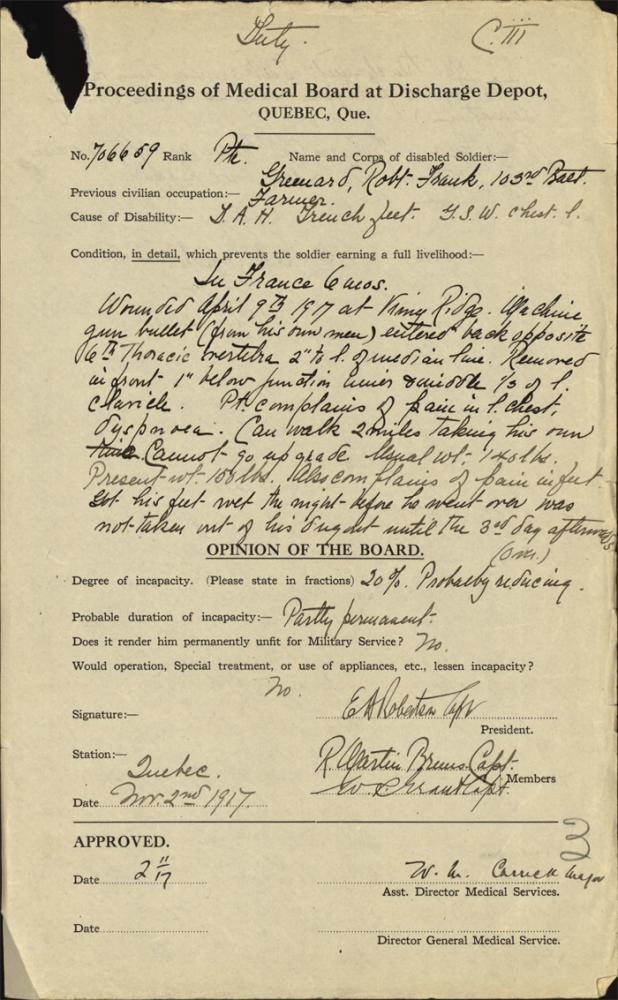 Duty. C III
Proceedings of Medical Board at Discharge Depot,
QUEBEC, Que.
No. 706659 Rank Pte. Name and Corps of disabled Soldier:—
Greenard, Robt. Frank, 103rd Batt.
Previous civilian occupation:— Farmer.
Cause of Disability:— D.A.H. Trench feet. G.S.W. chest. l.
Condition, in detail, which prevents the soldier earning a full livelihood:—
In France 6 mos.
Wounded April 9th 1917 at Vimy Ridge. Machine
gun bullet (from his own men) entered back opposite
6th Thoracic vertebra 2" to l. of median line. Removed
in front 1" below junction inner & middle 1/3 of l.
clavicle. Pt. complains of pain in l. chest,
dyspnoea. Can walk 2 miles taking his own
time. Cannot go up grade. Usual wt. 140 lbs.
Present wt. 108 lbs. Also complains of pain in feet
Got his feet wet the night before he went over was
not taken out of his dugout until the 3rd day afterwards
(over.)
OPINION OF THE BOARD.
Degree of incapacity. (Please state in fractions) 20%. Probably reducing.
Probable duration of incapacity:— Partly permanent.
Does it render him permanently unfit for Military Service? No.
Would operation, Special treatment, or use of appliances, etc., lessen incapacity?
No.
Signature:— E A Robertson Capt
President.
Station:— Quebec. R. Martin Capt.
Members
Date Nov. 2nd 1917 Capt.
APPROVED.
3
Date 2 11/17 W. M. Carrick Major
Asst. Director Medical Services.
Date
Director General Medical Service.